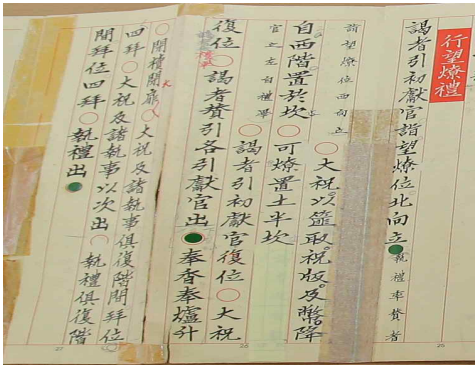 行望燎禮
謁者引初獻官詣望燎位北向立 執禮率贊者
詣望燎位西向立 ○大祝以篚取祝版及幣降
自西階置於坎○可燎置土半坎
官之左白禮畢 ○謁者引初獻官復位○大祝
復位○謁者贊引各引獻官出 奉香奉爐升
○閉櫝閉扉 ○大祝及諸執事俱復階間拜位
四拜○大祝及諸執事以次出○執禮俱復階
間拜位四拜○執禮出